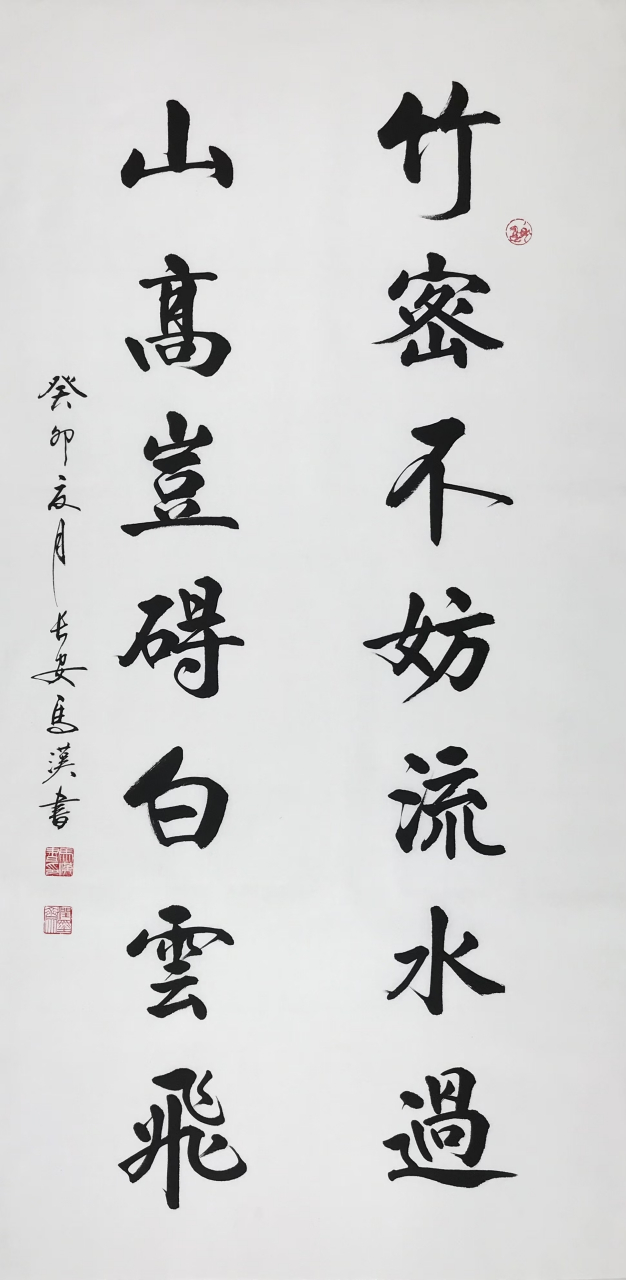 竹密不妨流水過
山高豈碍白雲飛
癸卯夏月长安馬漢書